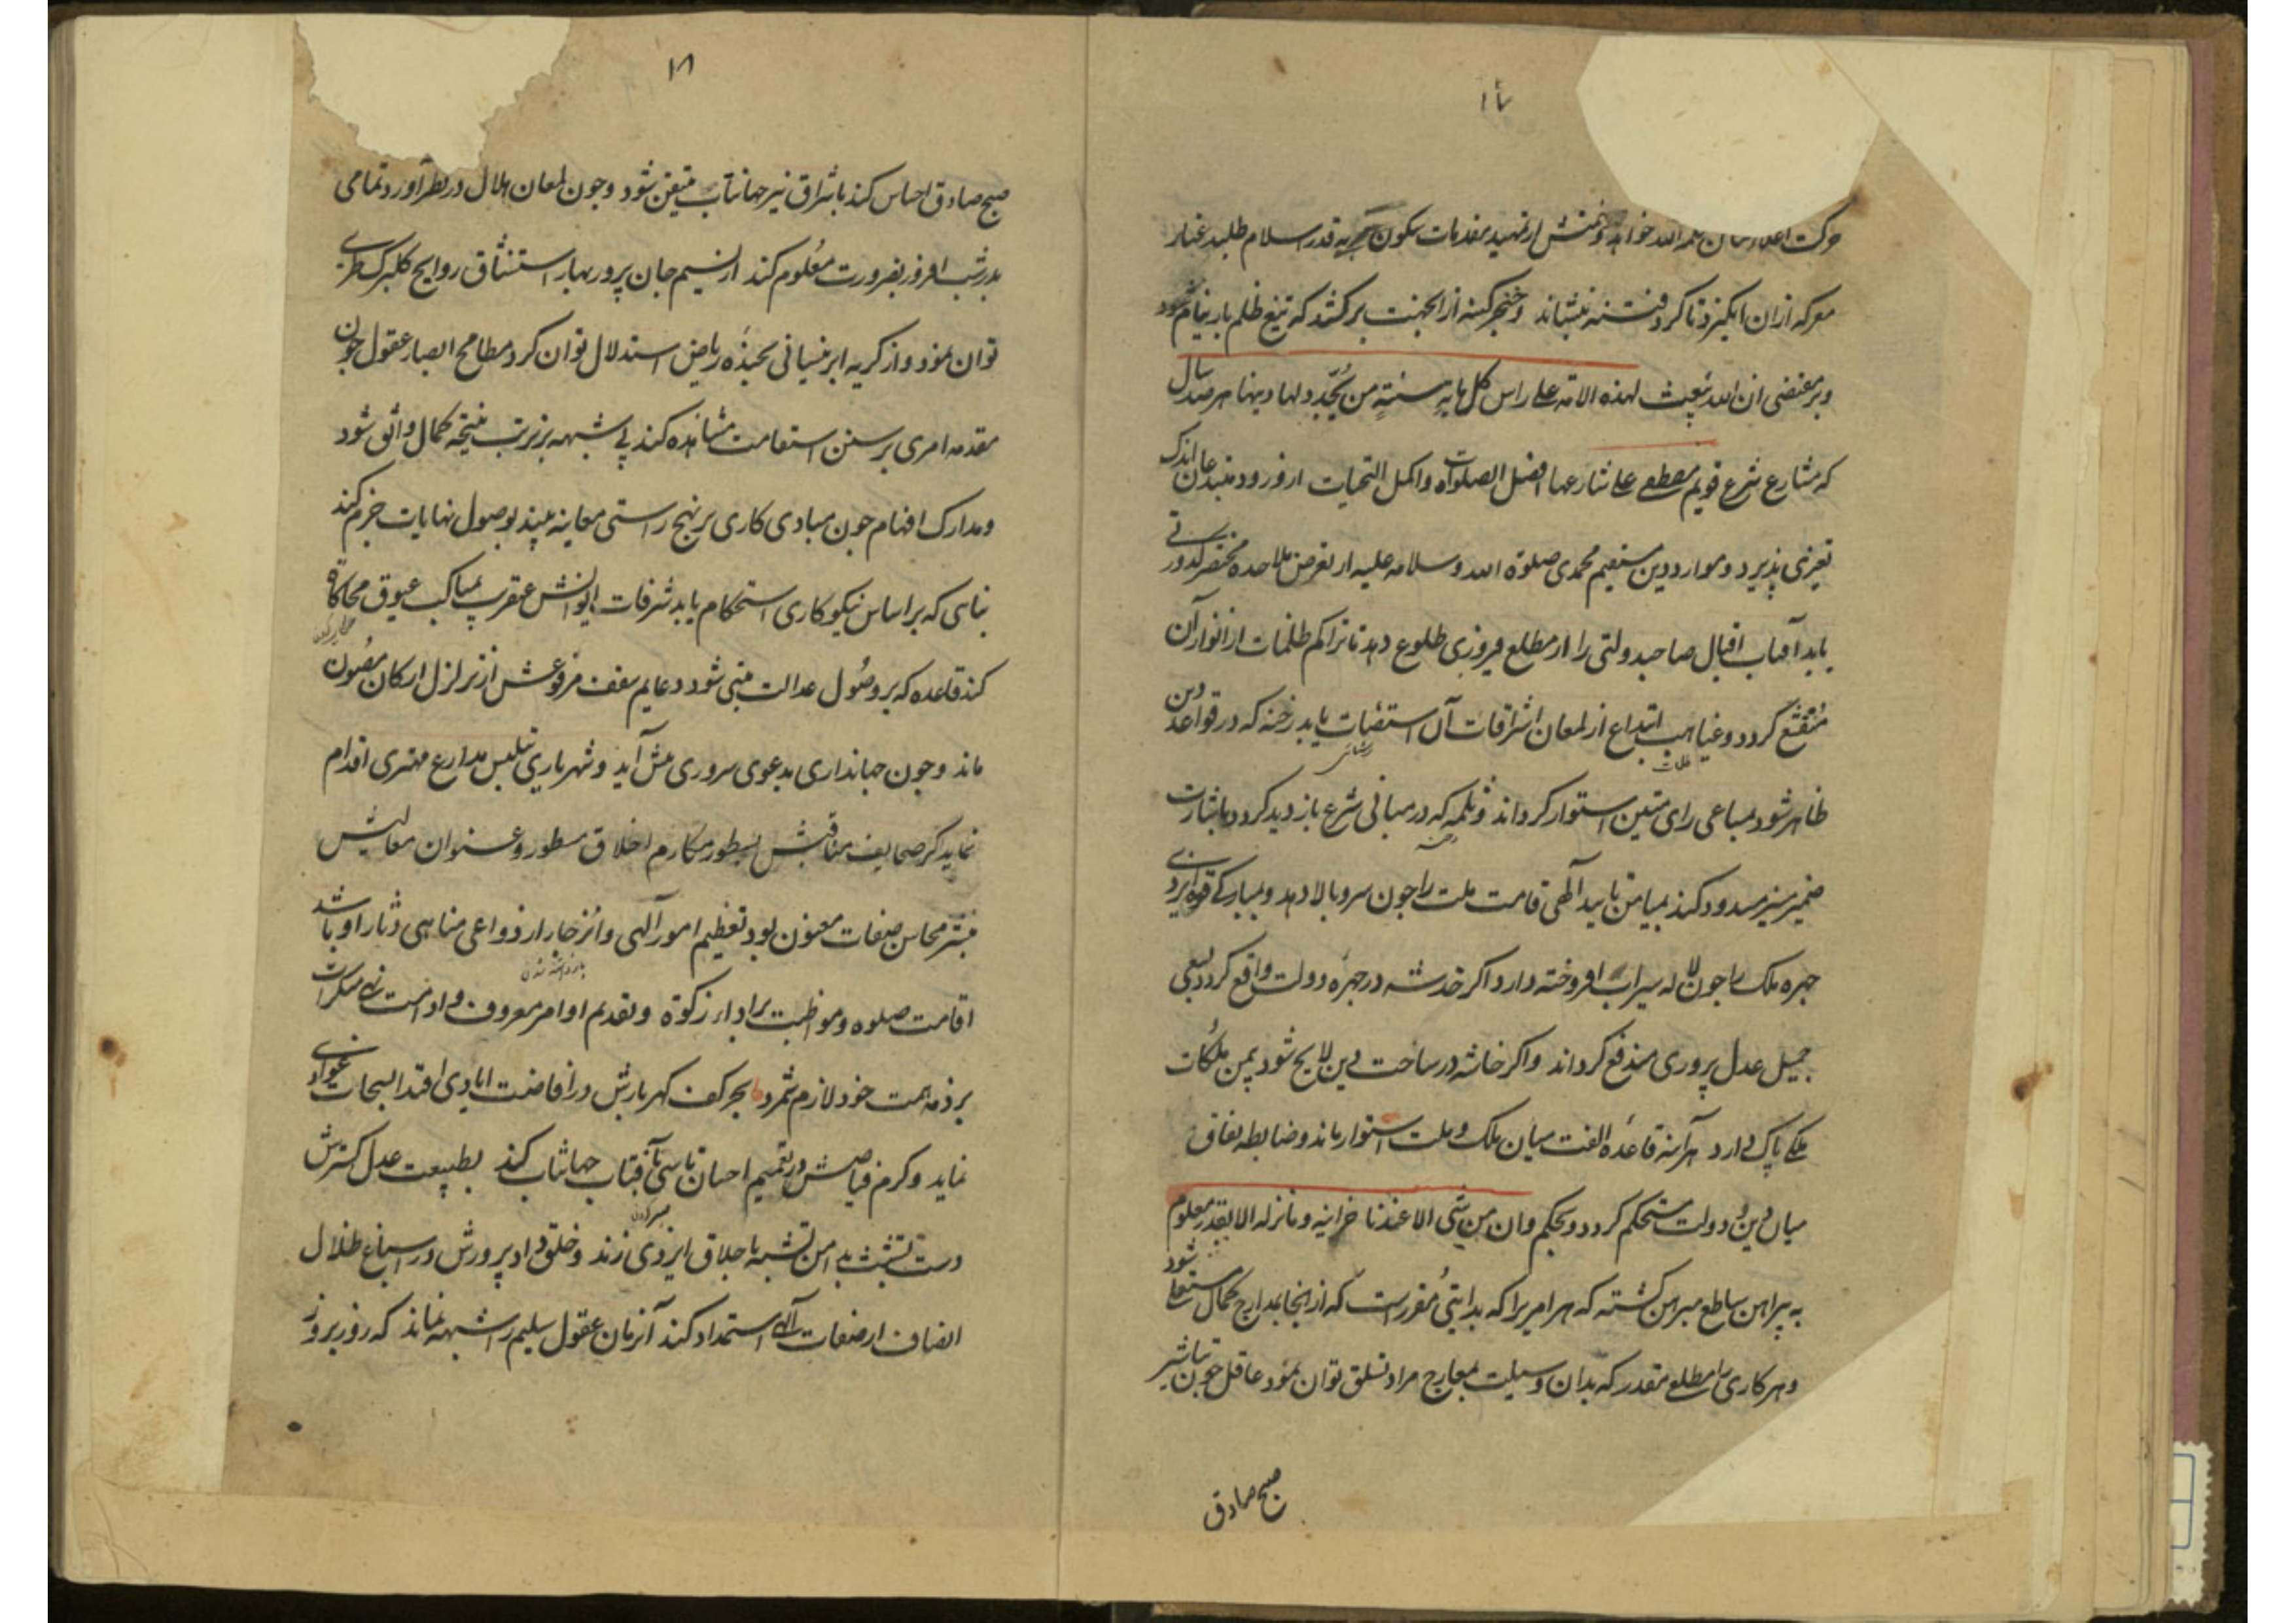 ۱۷
حرکت اعلاء کلمه الله خواهد و منش از تمهید مقدمات سکون به قدر اسلام طلبد غبار
معرکه ازان انگیزد تا کرد فتنه بنشاند و خنجر کینه از انجهت برکشد که تیغ ظلم باز نیام شود
و بر مقتضی ان الله یبعث لهذه الامة علی راس کل مایة سنة من یجدد لها دینها هر صد سال
که مشارع شرع قویم مصطفی علی شارعها افضل الصلوات و اکمل التحیات از ورود مبتدعان اندک
تغیری پذیرد و موارد دین مستقیم محمدی صلوة الله و سلامه علیه از تعرض ملاحده مختصر کدورتی
یابد آفتاب اقبال صاحبدولتی را از مطلع فیروزی طلوع دهد تا تراکم ظلمات از انوار آن
منقشع کردد و غیاهب ابتداع از لمعان اشراقات آن استضیات یابد رخنه که در قواعد دین
ظلمات
روشنایی
ظاهر شود بمساعی رای متین استوار کرداند و ثلمه که در مبانی شرع بازدید کردد باشارت
رخنه
ضمیر منیر مسدود کند بمیامن تایید آلهی قامت ملت را جون سرو بالا دهد و بمبارکی قوة ایزدی
جهره ملک را جون لاله سیراب افروخته دارد اکر خدشه در جهرهٔ دولت واقع کردد بسعی
جمیل عدل پروری مندفع کرداند و اکر خاشه در ساحت دین لایح شود بیمن ملکات
ملکی پاک دارد هرآینه قاعدهٔ الفت میان ملک و ملت استوار ماند و ضابطه نفاق
میان دین و دولت مستحکم کردد و بحکم وان من شئ الا عندنا خزاینه و ما ننزله الا بقدر معلوم
به پیراهن ساطع مبرهن کشته که هر امیرا که بدایتی مقررست که از انجا بمدارج کمال مستعلی شود
و هر کاری را مطلع مقدر که بدان وسیلت بمعارج مراد تسلق توان نمود عاقل جون تباشیر
صبح صادق
۱۸
صبح صادق احساس کند باشراق نیر جهانتاب متیقن شود و جون لمعان هلال در نظر آورد تمامی
بدر شب افروز بضرورت معلوم کند از نسیم جان پرور بهار استنشاق روایح کلبرک طری
توان نمود و از کریه ابر نیسانی بخندهٔ ریاض استدلال توان کرد مطامح ابصار عقول جون
مقدمه امری بر سنن استقامت مشاهده کند بی شبهه بر ترتب نتیجه کمال واثق شود
و مدارک افهام جون مبادی کاری بر نهج راستی معاینه بیند بوصول نهایات جزم کند
بنائی که بر اساس نیکوکاری استحکام یابد شرفات ایوانش عنقریب بمناکب عیوق محاکاة
کند قاعده که بر وصول عدالت مبنی شود دعایم سقف مرفوعش از تزلزل ارکان مصون
ماند و جون جهانداری بدعوی سروری مش آید و شهریاری بتلبس مدارع مهتری اقدام
نماید کر صحایف مناقبش بسطور مکارم اخلاق مسطور و عنوان معالیش
بنشر محاسن صفات معنون بود تعظیم امور آلهی و انزجار از دواعی مناهی دثار او باشد
باز داشته شدن
اقامت صلوه و مواظبت بر اداء زکوة و تقدیم اوامر معروف و ادامت نهی منکرات
بر ذمه همت خود لازم شمرد بحر کف کهربارش در افاضت ایادی اقتدا بسحاب غوادی
نماید و کرم فیاضش در تعمیم احسان تاسی بآفتاب جهانتاب کند بطبیعت عدل کسترش
دست تشبث بدامن تشبه باخلاق ایزدی زند و خلق داد پرورش در اسباغ ظلال
انصاف از صفات آلهی استمداد کند آنزمان عقول سلیم را شبهه نماند که روز بروز